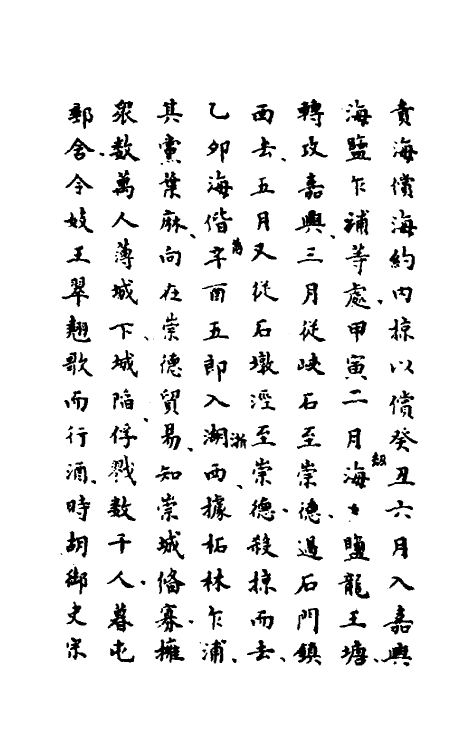 責海償海約內掠以償癸丑六月入嘉興
海鹽乍補等處甲寅二月海鹽龍王塘、
轉攻嘉興、三月從峽石至崇德、過石門鎮
西去、五月又從石墩涇至崇德、殺掠而去、
乙卯海偕辛酉五郎入浙西據柘林乍浦、
其黨葉麻、向在崇德貿易、知崇城備寡、擁
眾數萬人薄城下、城陷、俘戮數千人、暮屯
郵舍、令妓王翠翹歌而行酒、時胡御史宗